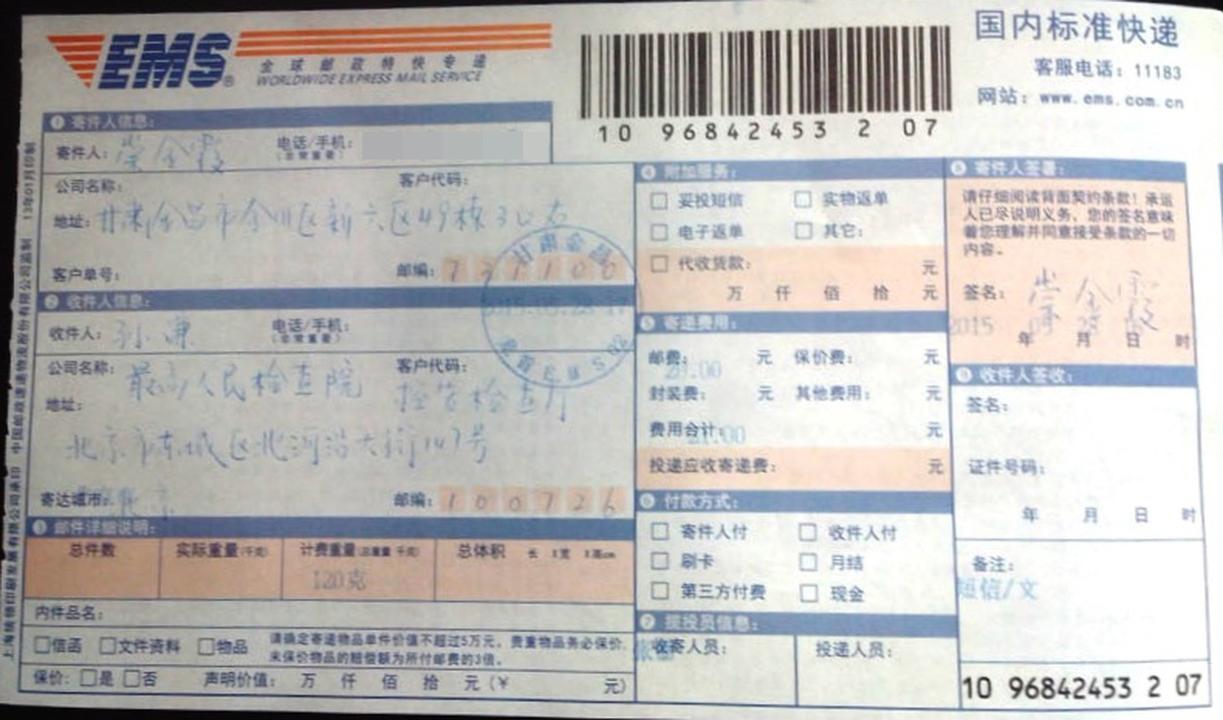 EMS
全球邮政特快专递
WORLDWIDE EXPRESS MAIL SERVICE
10 96842453 2 07
国内标准快递
客服电话：11183
网站：www.ems.com.cn
① 寄件人信息：
寄件人： 崇金霞 电话/手机：
（非常重要）
公司名称： 客户代码：
地址：甘肃金昌市金川区新六区49栋
客户单号： 邮编：737100
② 收件人信息：
收件人： 电话/手机：
（非常重要）
公司名称： 最高人民检查院 客户代码：
地址： 控告检查厅
北京市东城区北河沿大街147号
寄达城市： 北京 邮编：100726
③ 邮件详细说明：
总件数 实际重量（千克） 计费重量（总重量 千克） 总体积 长 X宽 X高cm
120克
内件品名：
□信函 □文件资料 □物品 请确定寄递物品单件价值不超过5万元，贵重物品务必保价，
未保价物品的赔偿额为所付邮费的3倍。
保价：□是 □否 声明价值： 万 仟 佰 拾 元（¥ 元）
④ 附加服务：
□ 妥投短信 □ 实物返单
□ 电子返单 □ 其它：
□ 代收货款： 元
万 仟 佰 拾 元
⑤ 寄递费用：
邮费： 元 保价费： 元
封装费： 元 其他费用： 元
费用合计： 元
投递应收寄递费： 元
⑥ 付款方式：
□ 寄件人付 □ 收件人付
□ 刷卡 □ 月结
□ 第三方付费 □ 现金
⑦ 揽投员信息：
收寄人员： 投递人员：
⑧ 寄件人签署：
请仔细阅读背面契约条款！承运
人已尽说明义务，您的签名意味
着您理解并同意接受条款的一切
内容。
签名： 崇金霞
2015
年 月 日 时
⑨ 收件人签收：
签名：
证件号码：
年 月 日 时
备注：
短信/文
10 96842453 2 07